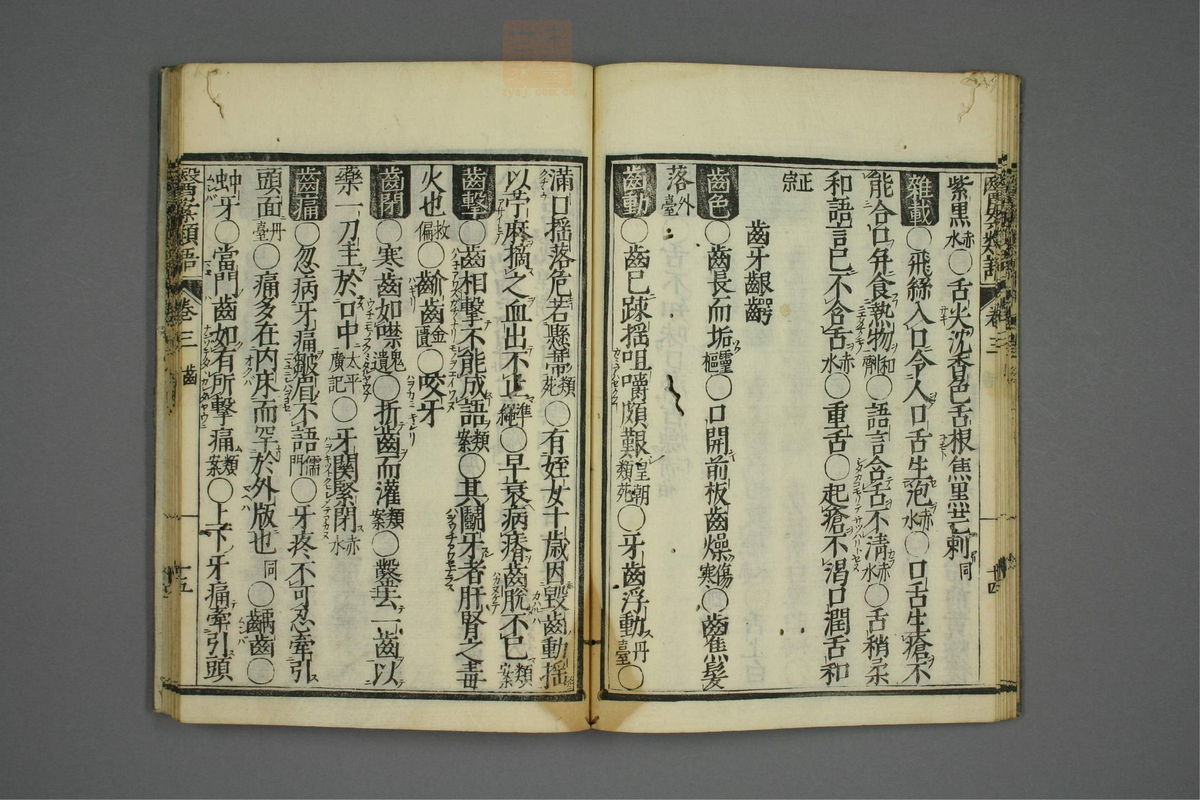 紫黒赤水〇舌尖沈香色舌根焦黒芒刺同
雜載〇飛絲入口令人口舌生泡赤水〇口舌生瘡不
能合口并食熱物和劑〇語言含舌不清赤水〇舌稍柔
和語言已不含舌赤水〇重舌〇起瘡不渇口潤舌和
正宗
齒牙齦齶
齒色〇齒長而垢靈樞〇口開前板齒燥傷寒〇齒焦髮
落外臺
齒動〇齒已踈揺咀嚼頗艱皇朝類苑〇牙齒浮動丹臺〇
滿口揺落危若懸蔕類苑〇有姪女十歳因毀齒動揺
以苧麻摘之血出不止準繩〇早衰病瘠齒脱不已類案
齒撃〇齒相撃不能成語類案〇其鬭牙者肝腎之毒
火也救偏〇齘齒金匱〇咬牙
齒閉〇寒齒如噤鬼遺〇折齒而灌類案〇鑿去一齒以
藥一刀圭於口中太平廣記〇牙関緊閉赤水
齒痛〇忽病牙痛皺眉不語儒門〇牙疼不可忍牽引
頭面丹臺〇痛多在内床而罕於外版也同〇齲齒〇
蚛牙〇當門齒如有所撃痛類案〇上下牙痛牽引頭
醫學類語 卷三 齒 十五
卷三 十四